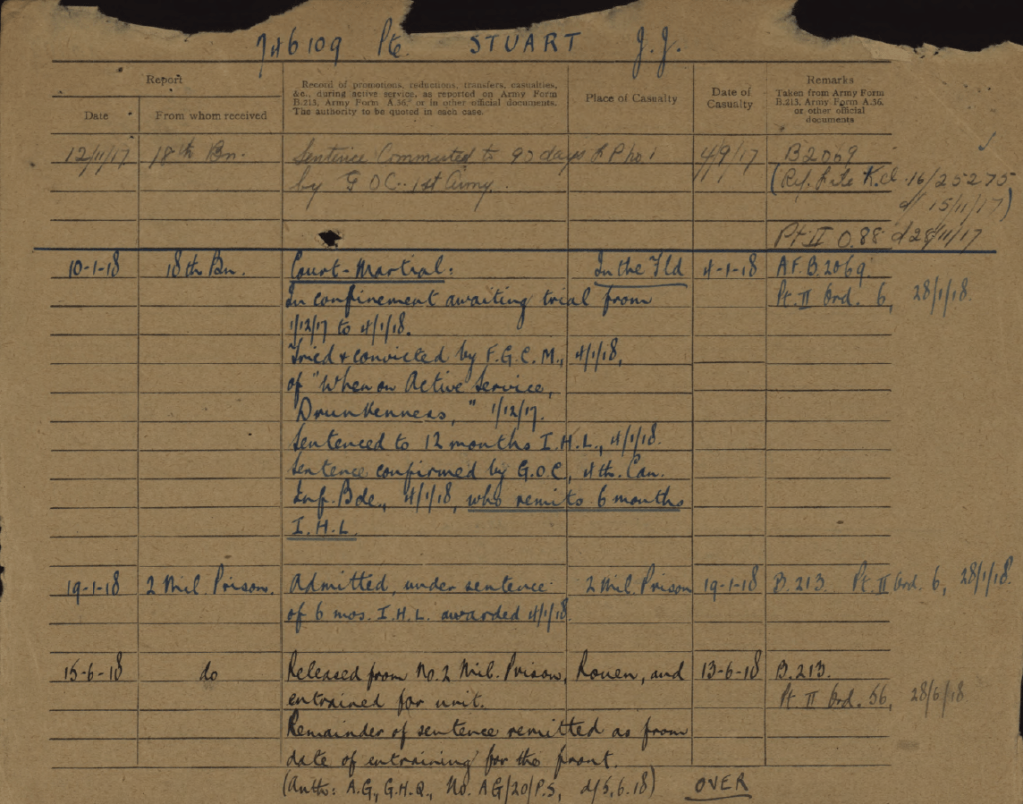 746109 Pte. STUART J.J.
Report
Date
From whom received
Record of promotions, reductions, transfers, casualties,
&c., during active service, as reported on Army Form
B.213, Army Form A.36, or in other official documents.
The authority to be quoted in each case.
Place of Casualty
Date of
Casualty
Remarks
Taken from Army Form
B.213, Army Form A.36,
or other official
documents
12/11/17 18th Bn. Sentence Commuted to 90 days F P No 1 4/9/17 B2069
by G O C. 1st Army. (Ref. file K.cl. 16/25275
d/ 15/11/17)
Pt II O.88 d 28/11/17
10-1-18 18th Bn. Court-Martial: In the Fld 4-1-18 A.F.B.2069.
In confinement awaiting trial from Pt. II Ord. 6, 28/1/18.
1/12/17 to 4/1/18.
Tried & convicted by F.G.C.M., 4/1/18,
of "When on Active Service,
Drunkenness," 1/12/17.
Sentenced to 12 months I.H.L., 4/1/18.
Sentence confirmed by G.O.C, 4th. Can.
Inf. Bde., 4/1/18, who remits 6 months
I.H.L.
19-1-18 2 Mil. Prison. Admitted, under sentence 2 Mil. Prison 19-1-18 B.213. Pt. II Ord. 6, 28/1/18.
of 6 mos. I.H.L. awarded 4/1/18
15-6-18 do Released from No. 2 Mil. Prison, Rouen, and 13-6-18 B.213.
entrained for unit. Pt II Ord. 56, 28/6/18
Remainder of sentence remitted as from
date of entraining for the front.
(Auth: A.G., G.H.Q., No. AG/20/P.S, d/5.6.18) OVER